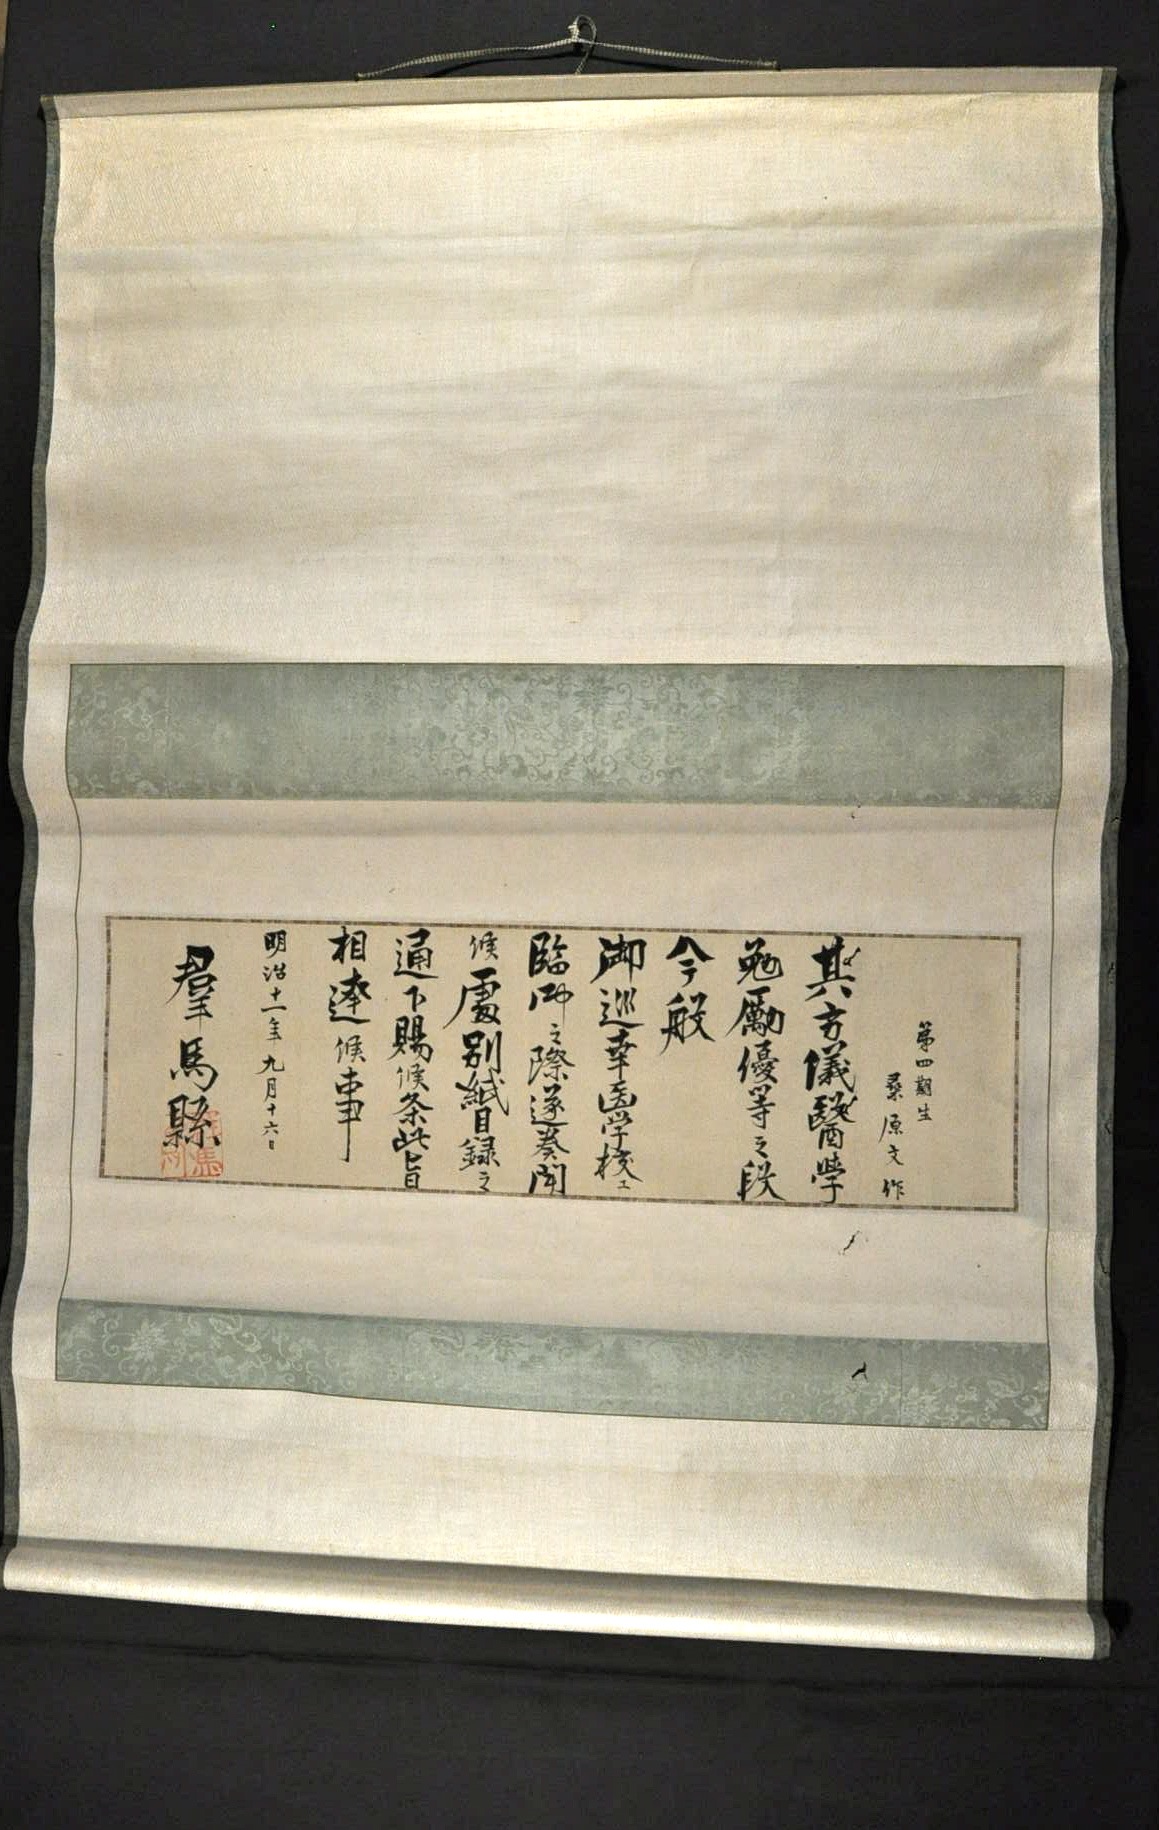 第四期生
桒原文作
其方儀醫学
勉励優等之段
今般
御巡幸医学校エ
臨御之際遂奏聞
候處別紙目録之
通下賜候条此旨
相達候事
明治十一年九月十六日
羣馬縣